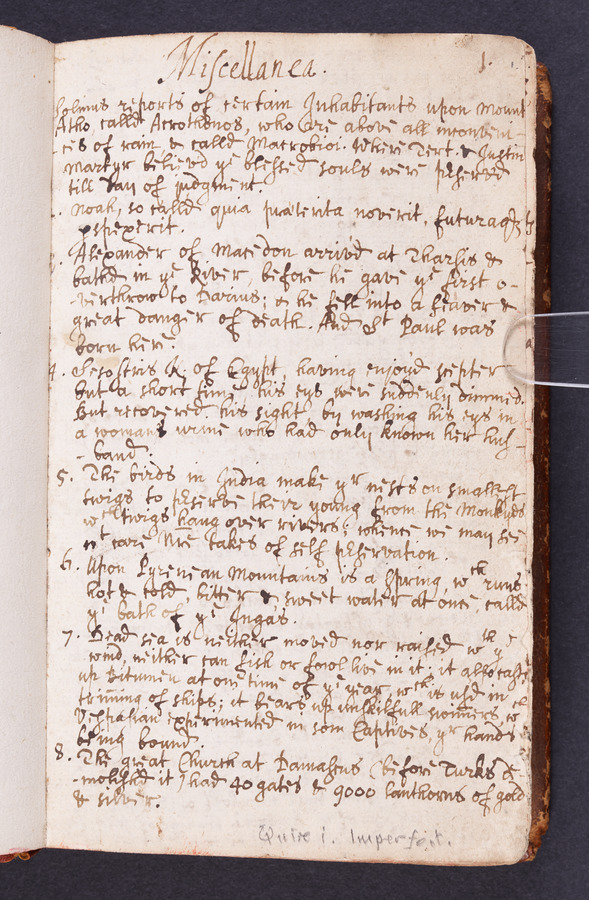 Miscellanea. 1.
Solinus reports of certain Inhabitants upon Mount
Atho, calld Acrothonos, who are above all inconveni-
-ces of rain & calld Macrobioi. Where Tert. & Justin
Martyr believd ye blessed souls were pserved
till Day of judgment.
Noah, so calld quia praeterita noverit, futuraq3
pspexerit.
Alexander of Macedon arrivd at Tharsis &
bathd in ye River, before he gave ye first o-
-verthrow to Darius; & he fell into a feaver &
great danger of death. And St Paul was
born here.
4. Sesostris K. of Egypt, having enjoyd scepter
but a short time, his eys were suddenly dimmed.
But recovered his sight, by washing his eys in
a womans urine who had only known her hus-
-band.
5. The birds in India make yr nests on smallest
twigs to pserve their young from the Monkyds
wch twigs hang over rivers; whence we may see
wt care Nre takes of self pservation.
6. Upon Pyrenean Mountains is a Spring, wch runs
hot & cold, bitter & sweet water at once, calld
ye bath of ye Ingas.
7. Dead sea is neither moved nor raised wth ye
wind, neither can fish or fowl live in it; it also casts
up Bitumen at one time of ye year, wch is usd in
triming of ships; it bears up unskilfull swimers, wch
Vespatian experimented in som Captives, yr hands
being bound.
8. The great Church at Damascus (before Turks de-
-molishd it) had 40 gates & 9000 lanthorns of gold
& silver.
Quire i. Imperfect.